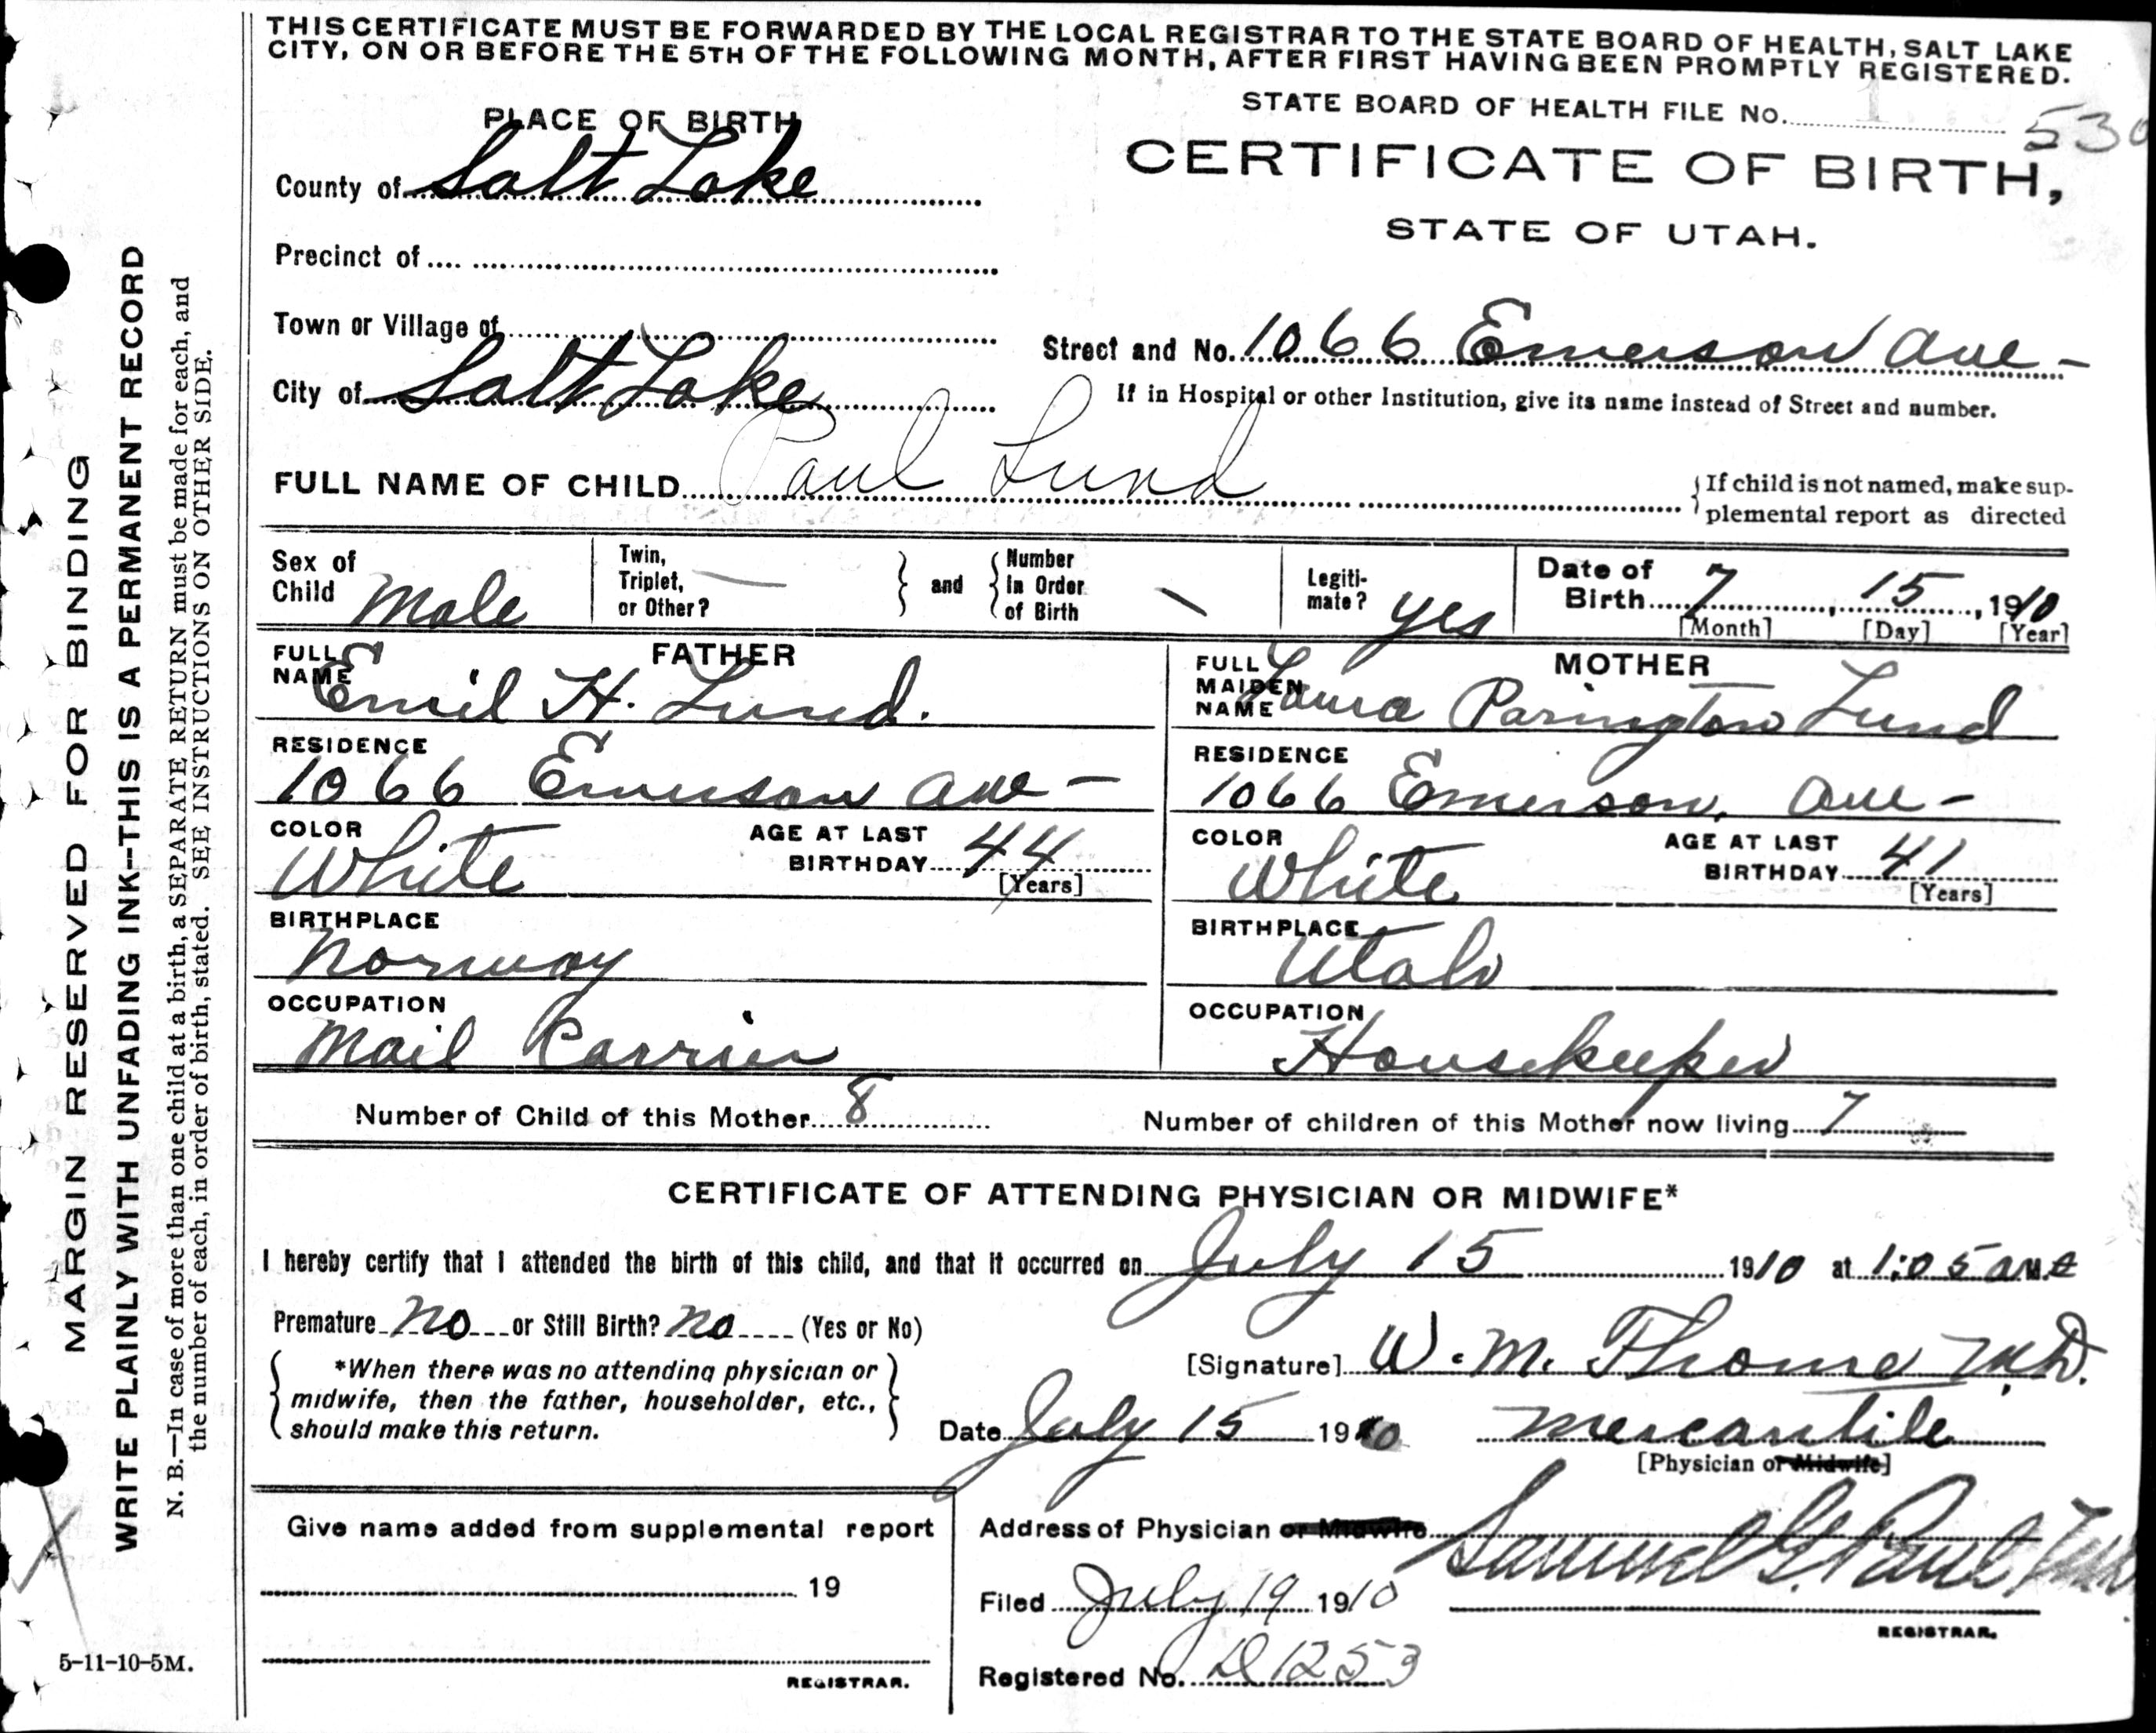 THIS CERTIFICATE MUST BE FORWARDED BY THE LOCAL REGISTRAR TO THE STATE BOARD OF HEALTH, SALT LAKE
CITY, ON OR BEFORE THE 5TH OF THE FOLLOWING MONTH, AFTER FIRST HAVING BEEN PROMPTLY REGISTERED.
STATE BOARD OF HEALTH FILE No. 530
PLACE OF BIRTH
CERTIFICATE OF BIRTH,
STATE OF UTAH.
County of Salt Lake
Precinct of
Town or Village of
Street and No. 1066 Emerson Ave -
City of Salt Lake
If in Hospital or other Institution, give its name instead of Street and number.
FULL NAME OF CHILD Paul Lund
{If child is not named, make sup-
plemental report as directed
Sex of Child Male
Twin, Triplet, or Other? — } and { Number in Order of Birth \
Legiti-mate? yes
Date of Birth 7, 15, 1910
[Month] [Day] [Year]
FATHER
FULL NAME Emil H. Lund.
RESIDENCE
1066 Emerson Ave -
COLOR White
AGE AT LAST BIRTHDAY 44
[Years]
BIRTHPLACE
Norway
OCCUPATION
Mail Carrier
MOTHER
FULL MAIDEN NAME Laura Parington Lund
RESIDENCE
1066 Emerson, Ave -
COLOR White
AGE AT LAST BIRTHDAY 41
[Years]
BIRTHPLACE
Utah
OCCUPATION
Housekeeper
Number of Child of this Mother 8
Number of children of this Mother now living 7
CERTIFICATE OF ATTENDING PHYSICIAN OR MIDWIFE*
I hereby certify that I attended the birth of this child, and that it occurred on July 15 1910 at 1:05 a M.
Premature no or Still Birth? no (Yes or No)
{ *When there was no attending physician or
midwife, then the father, householder, etc.,
should make this return. }
[Signature] W. M. Thome M.D.
Date July 15 1910
Mercantile
[Physician or Midwife]
Give name added from supplemental report
19
REGISTRAR.
Address of Physician or Midwife
Filed July 19 1910
Samuel G. Paul M.D.
REGISTRAR.
Registered No. D1253
MARGIN RESERVED FOR BINDING
WRITE PLAINLY WITH UNFADING INK--THIS IS A PERMANENT RECORD
N. B.—In case of more than one child at a birth, a SEPARATE RETURN must be made for each, and
the number of each, in order of birth, stated. SEE INSTRUCTIONS ON OTHER SIDE.
5-11-10-5M.